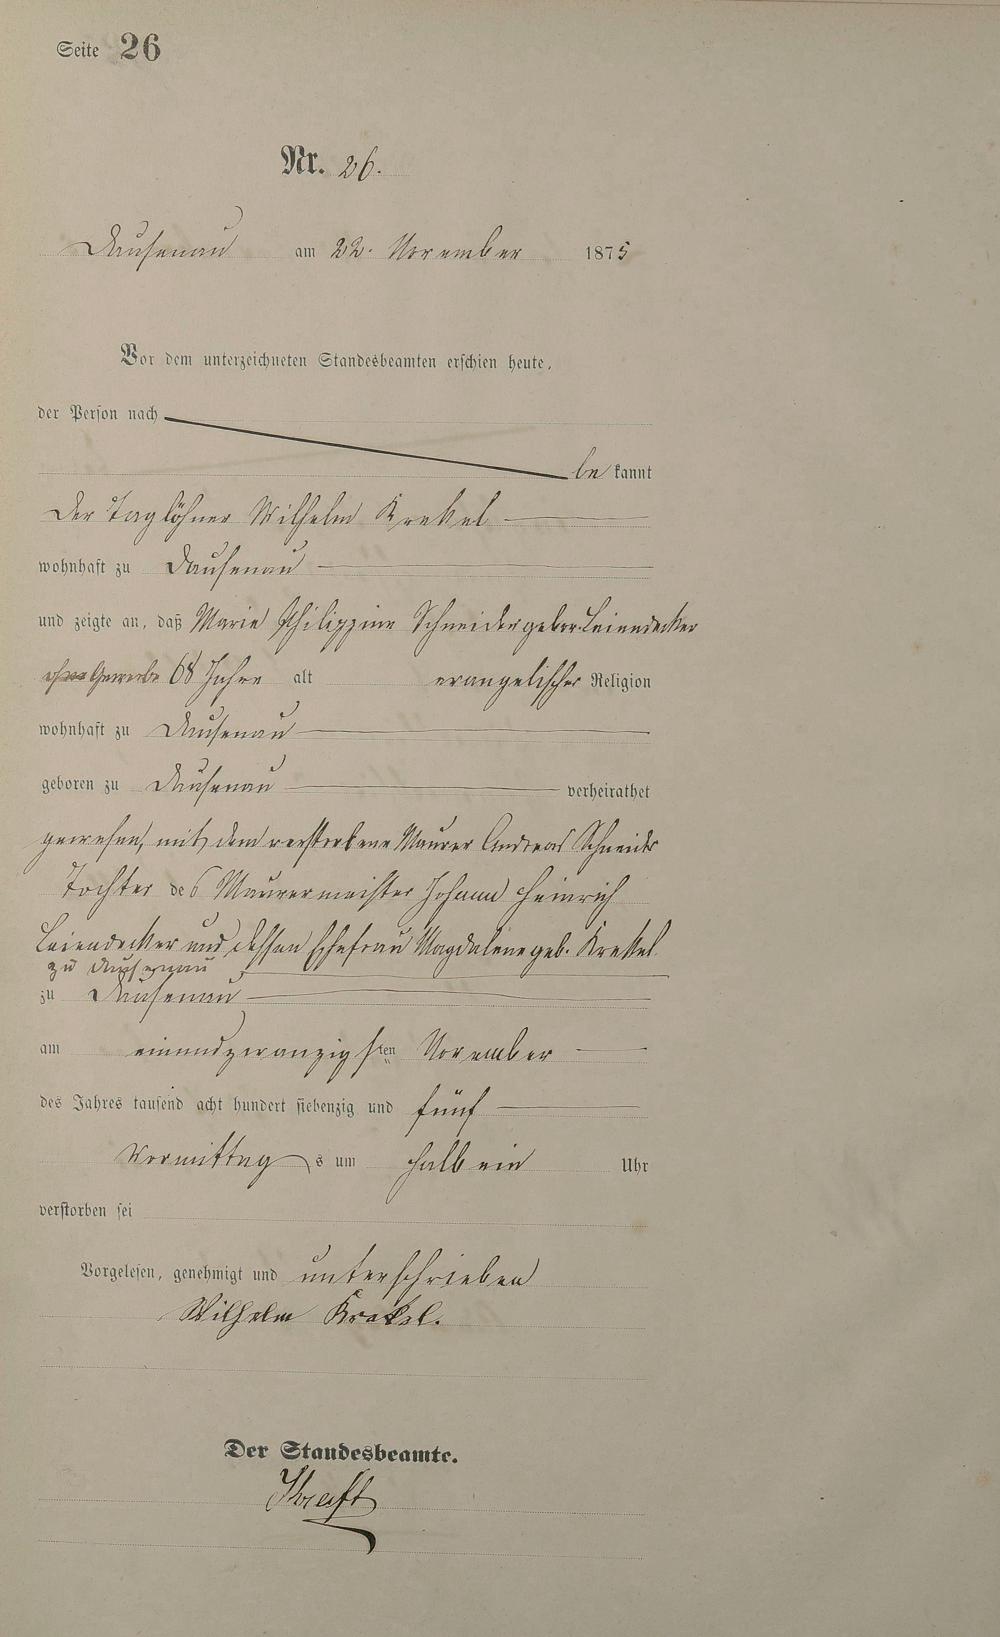 Seite 26
Nr. 26.
Dausenau am 22. November 1875
Vor dem unterzeichneten Standesbeamten erschien heute,
der Person nach
be kannt
Der Taglöhner Wilhelm Krekel
wohnhaft zu Dausenau
und zeigte an, daß Marie Philippine Schneider gebor. Leiendecker
ohne Gewerbe 68 Jahre alt evangelischer Religion
wohnhaft zu Dausenau
geboren zu Dausenau verheirathet
gewesen, mit dem verstorbene Maurer Andreas Schneider
Tochter des Maurermeister Johann Heinrich
Leiendecker und dessen Ehefrau Magdalene geb. Krekel
zu Dausenau
zu Dausenau
am einundzwanzigsten November
des Jahres tausend acht hundert siebenzig und fünf
Vormittag s um halb ein Uhr
verstorben sei
Vorgelesen, genehmigt und unterschrieben
Wilhelm Krekel.
Der Standesbeamte.